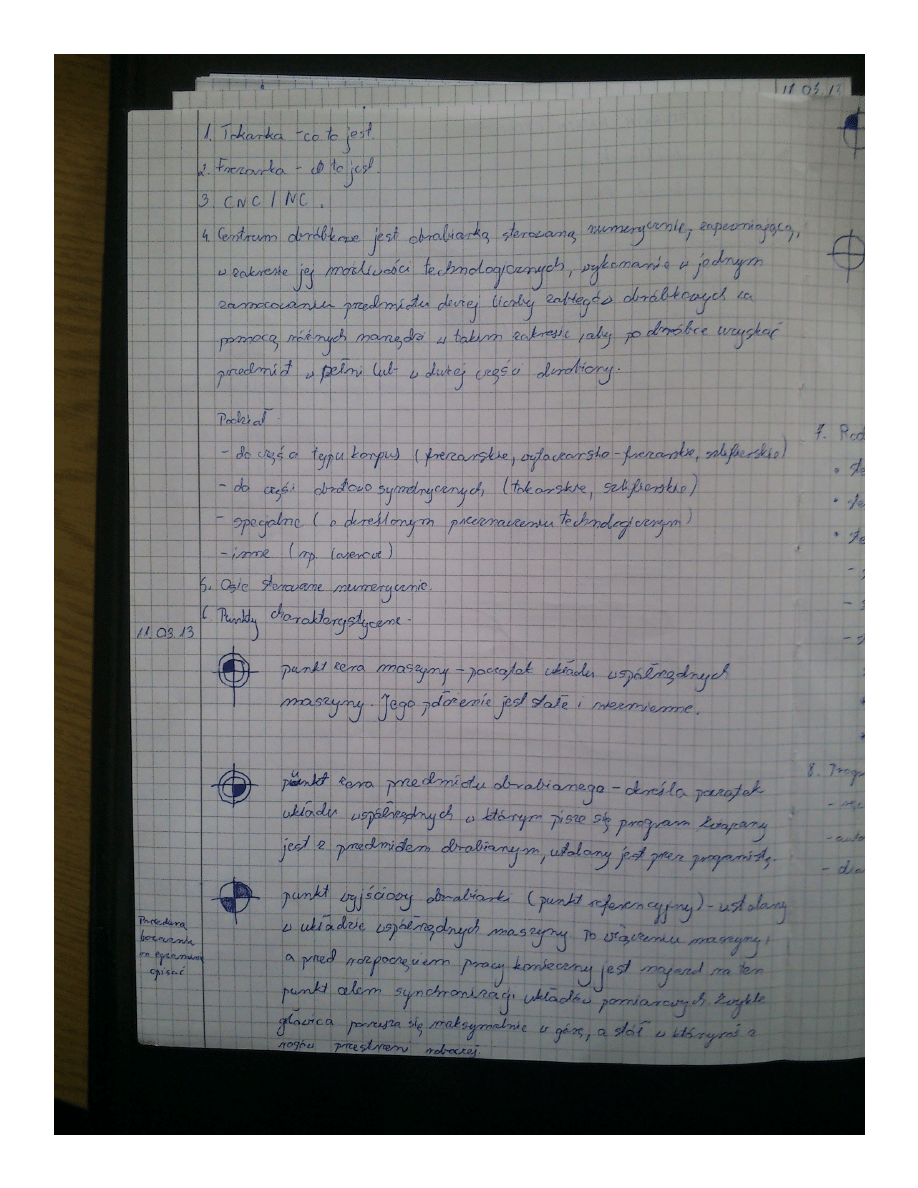 11.03.13
1. Tokarka - co to jest.
2. Frezarka - co to jest.
3. CNC / NC.
4. Centrum obróbkowe jest obrabiarką sterowaną numerycznie, zapewniającą,
w zakresie jej możliwości technologicznych, wykonanie w jednym
zamocowaniu przedmiotu dużej liczby zabiegów obróbkowych za
pomocą różnych narzędzi w takim zakresie, aby po obróbce uzyskać
przedmiot w pełni lub w dużej części obrobiony.
Podział
- do części typu korpus (frezarskie, wytaczarsko-frezarskie, szlifierskie)
- do części obrotowo symetrycznych (tokarskie, szlifierskie)
- specjalne (o określonym przeznaczeniu technologicznym)
- inne (np. laserowe)
5. Osie sterowane numerycznie.
6. Punkty charakterystyczne.
11.03.13
punkt zera maszyny - początek układu współrzędnych
maszyny. Jego położenie jest stałe i niezmienne.
punkt zera przedmiotu obrabianego - określa początek
układu współrzędnych w którym pisze się program. Związany
jest z przedmiotem obrabianym, ustalany jest przez programistę.
punkt wyjściowy obrabiarki (punkt referencyjny) - ustalany
w układzie współrzędnych maszyny. Po włączeniu maszyny i
a przed rozpoczęciem pracy konieczny jest najazd na ten
punkt celem synchronizacji układów pomiarowych. Zwykle
głowica porusza się maksymalnie w górę, a stół w którymś z
rogów przestrzeni roboczej.
Procedura
bazowania
na egzamin
opisać
7. Rod
8. Progr